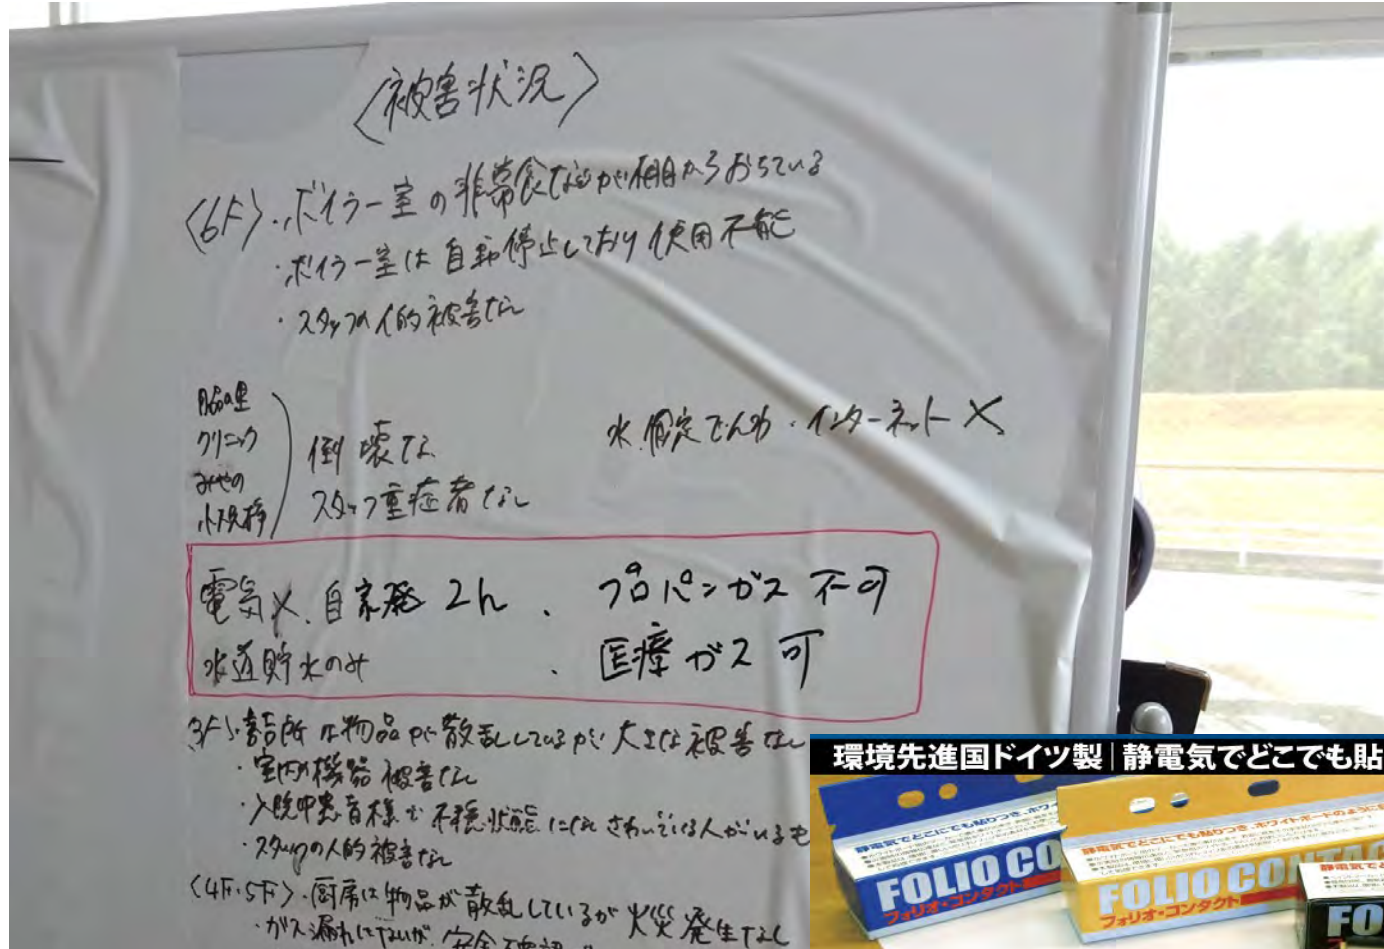 〈被害状況〉
〈6F〉・ボイラー室の非常食などが棚からおちている
・ボイラー室は自動停止しており使用不能
・スタッフの人的被害なし
クリニック
みやの
倒壊なし
スタッフ重症者なし
水.固定でんわ・インターネット×
電気×.自家発2h
・プロパンガス不可
水道貯水のみ
・医療ガス可
〈3F〉・詰所は物品が散乱しているが大きな被害なし
・室内の機器被害なし
・入院中患者様で不穏状態になりさわいでいる人がいるも
・スタッフの人的被害なし
〈4F・5F〉・厨房は物品が散乱しているが火災発生なし
・ガス漏れはないが安全確認
環境先進国ドイツ製|静電気でどこでも貼
静電気でどこにでも貼りつき、ホワイ
FOLIO CO
フォリオ・コンタクト
静電気でどこにでも貼りつき、ホワイトボードのように
FOLIO CONTAC
フォリオ・コンタクト
静電気でど
FO